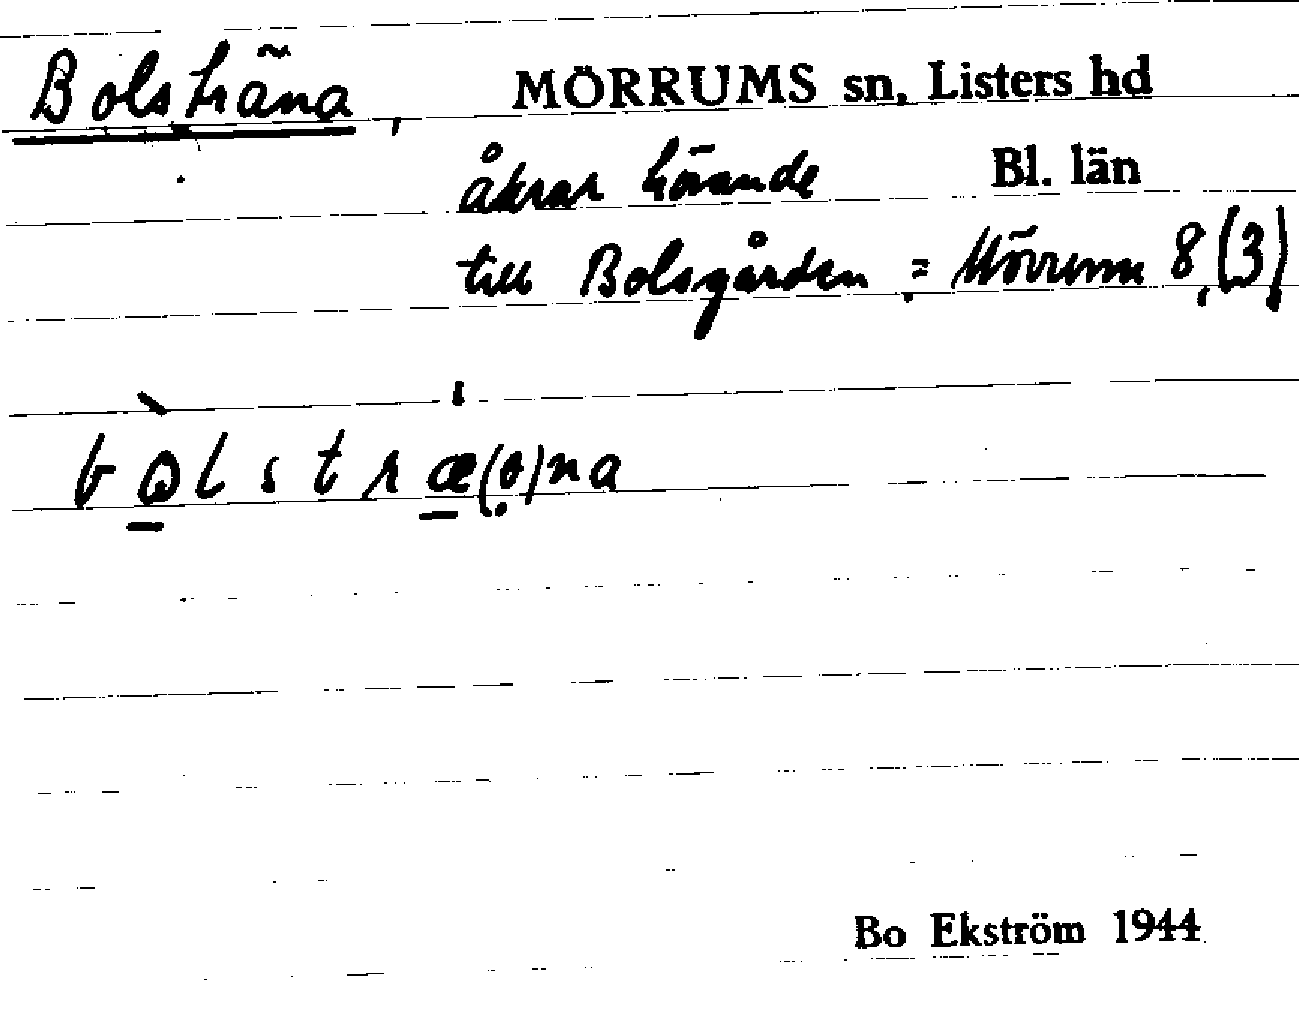 Bolsträna, MÖRRUMS sn, Listers hd
åkrar hörande Bl. län
till Bolsgården, = Mörrum 8, (3)
bò̱̱lstræ̱̍(ọ)na
Bo Ekström 1944